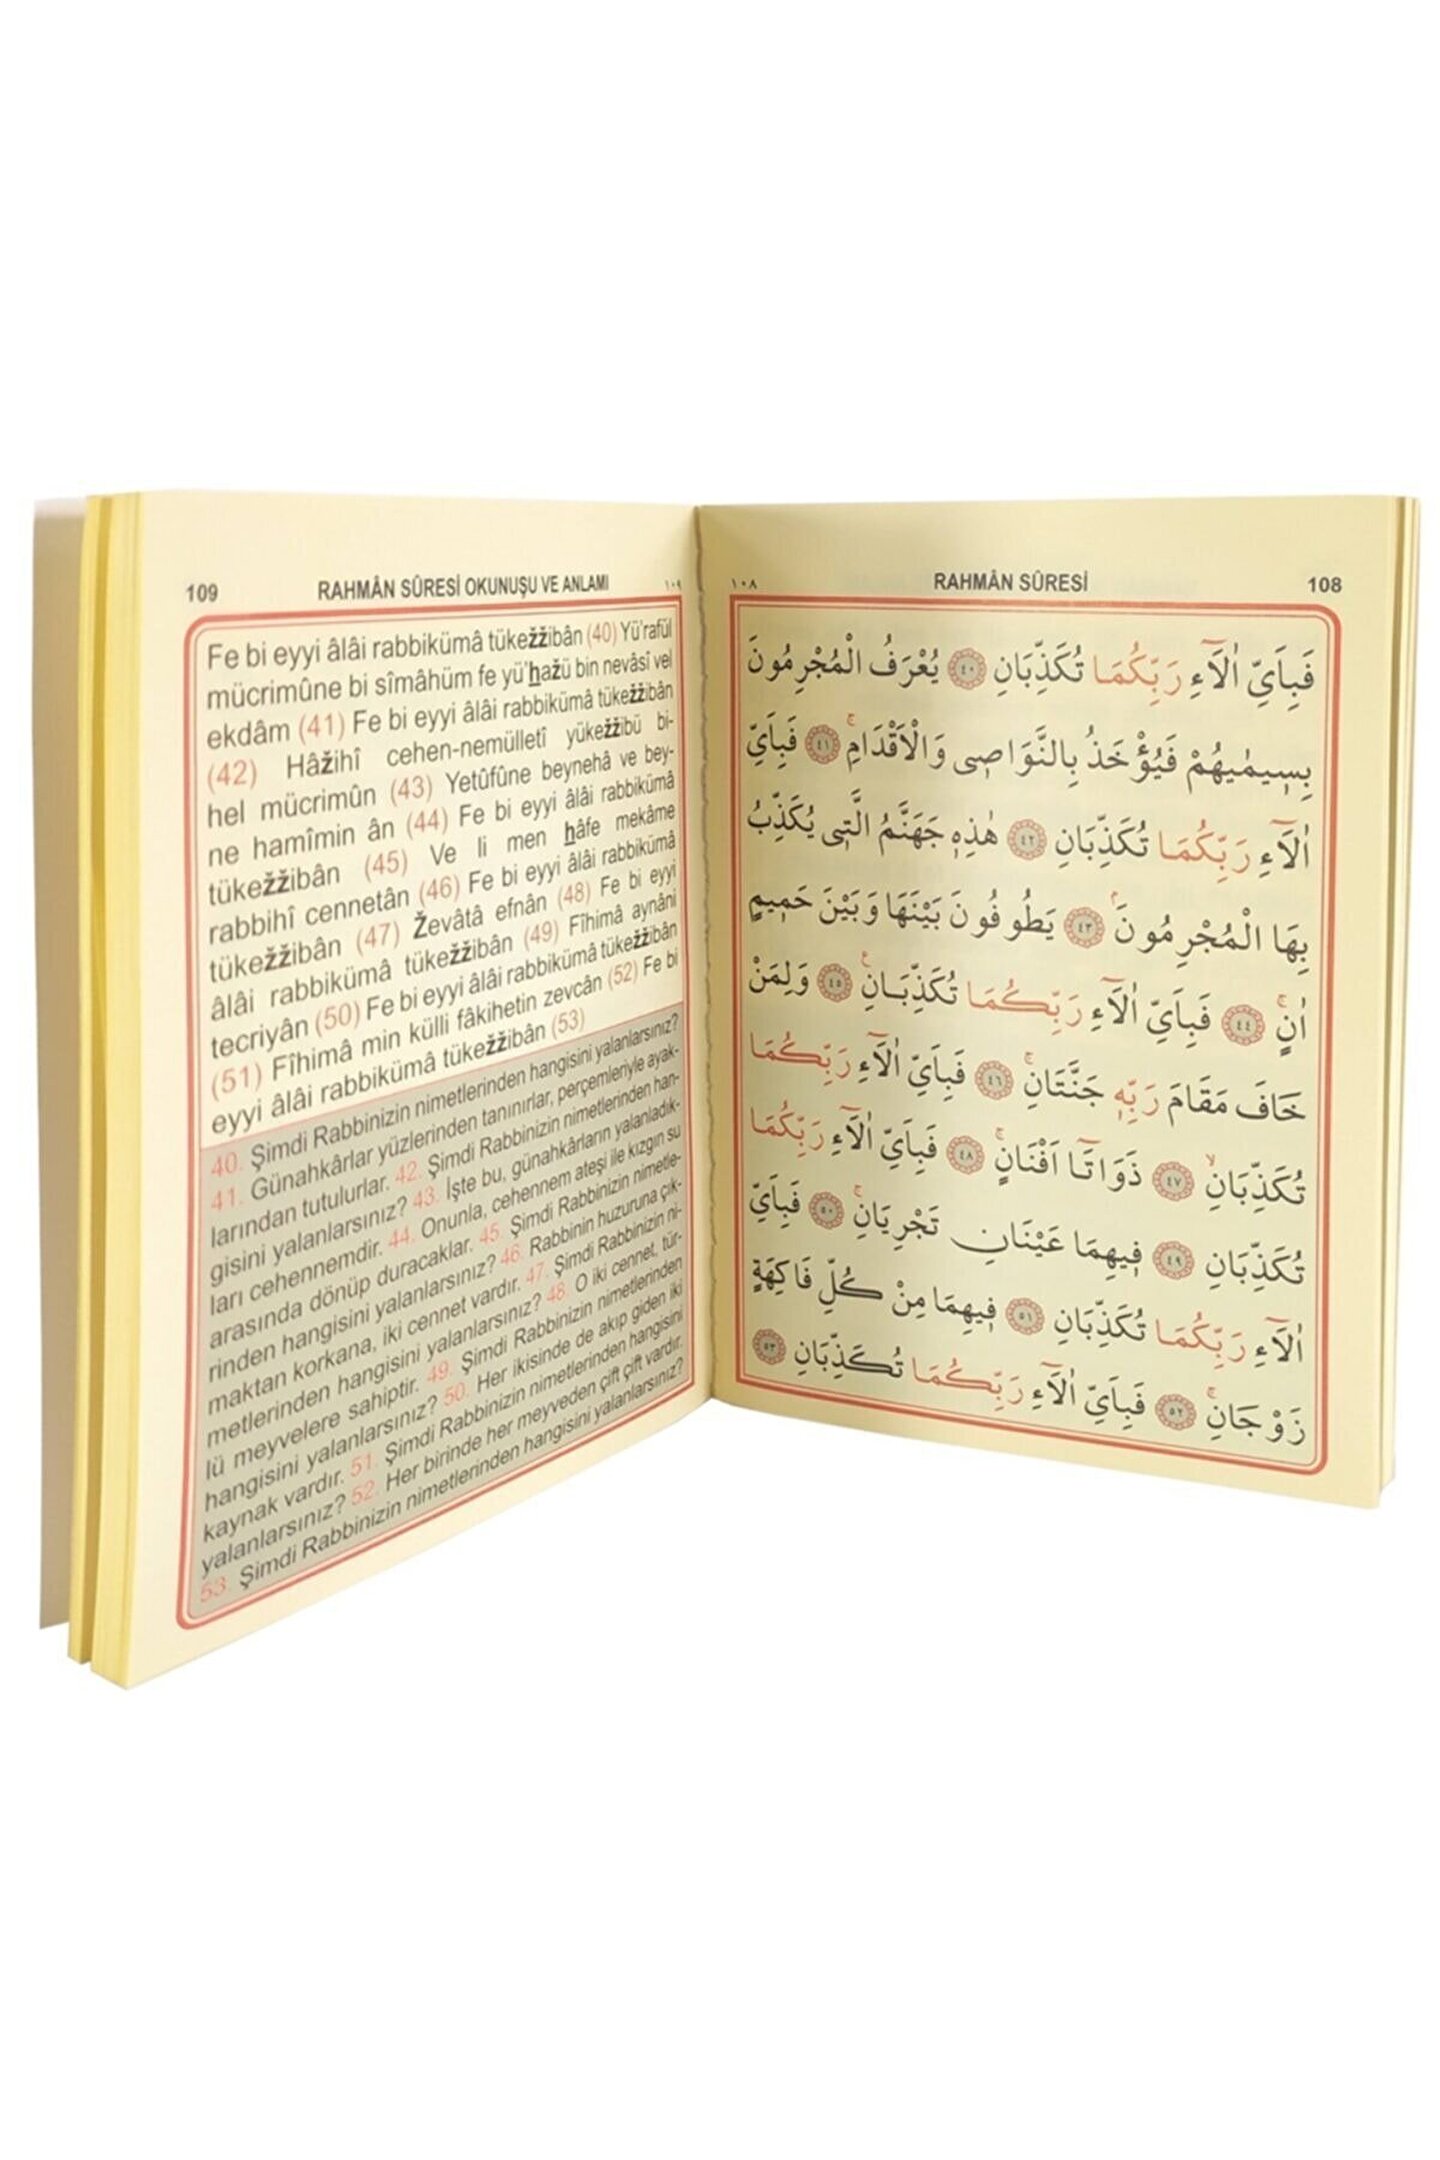 109 RAHMÂN SÛRESİ OKUNUŞU VE ANLAMI ١٠٩
Fe bi eyyi âlâi rabbikümâ tükežžibân (40) Yü'rafül
mücrimûne bi sîmâhüm fe yü'hažü bin nevâsî vel
ekdâm (41) Fe bi eyyi âlâi rabbikümâ tükežžibân
(42) Hâžihî cehen-nemülletî yükežžibü bi-
hel mücrimûn (43) Yetûfûne beynehâ ve bey-
ne hamîmin ân (44) Fe bi eyyi âlâi rabbikümâ
tükežžibân (45) Ve li men hâfe mekâme
rabbihî cennetân (46) Fe bi eyyi âlâi rabbikümâ
tükežžibân (47) Ževâtâ efnân (48) Fe bi eyyi
âlâi rabbikümâ tükežžibân (49) Fîhimâ aynâni
tecriyân (50) Fe bi eyyi âlâi rabbikümâ tükežžibân
(51) Fîhimâ min külli fâkihetin zevcân (52) Fe bi
eyyi âlâi rabbikümâ tükežžibân (53)
40. Şimdi Rabbinizin nimetlerinden hangisini yalanlarsınız?
41. Günahkârlar yüzlerinden tanınırlar, perçemleriyle ayak-
larından tutulurlar. 42. Şimdi Rabbinizin nimetlerinden han-
gisini yalanlarsınız? 43. İşte bu, günahkârların yalanladık-
ları cehennemdir. 44. Onunla, cehennem ateşi ile kızgın su
arasında dönüp duracaklar. 45. Şimdi Rabbinizin nimetle-
rinden hangisini yalanlarsınız? 46. Rabbinin huzuruna çık-
maktan korkana, iki cennet vardır. 47. Şimdi Rabbinizin ni-
metlerinden hangisini yalanlarsınız? 48. O iki cennet, tür-
lü meyvelere sahiptir. 49. Şimdi Rabbinizin nimetlerinden
hangisini yalanlarsınız? 50. Her ikisinde de akıp giden iki
kaynak vardır. 51. Şimdi Rabbinizin nimetlerinden hangisini
yalanlarsınız? 52. Her birinde her meyveden çift çift vardır.
53. Şimdi Rabbinizin nimetlerinden hangisini yalanlarsınız?
١٠٨ RAHMÂN SÛRESİ 108
فَبِاَيِّ اٰلَٓاءِ رَبِّكُمَا تُكَذِّبَانِ ﴿٤٠﴾ يُعْرَفُ الْمُجْرِمُونَ
بِسِيمٰيهُمْ فَيُؤْخَذُ بِالنَّوَاصِى وَالْاَقْدَامِۚ ﴿٤١﴾ فَبِاَيِّ
اٰلَٓاءِ رَبِّكُمَا تُكَذِّبَانِ ﴿٤٢﴾ هٰذِه۪ جَهَنَّمُ الَّت۪ى يُكَذِّبُ
بِهَا الْمُجْرِمُونَۘ ﴿٤٣﴾ يَطُوفُونَ بَيْنَهَا وَبَيْنَ حَم۪يمٍ
اٰنٍۚ ﴿٤٤﴾ فَبِاَيِّ اٰلَٓاءِ رَبِّكُمَا تُكَذِّبَانِ۟ ﴿٤٥﴾ وَلِمَنْ
خَافَ مَقَامَ رَبِّه۪ جَنَّتَانِۚ ﴿٤٦﴾ فَبِاَيِّ اٰلَٓاءِ رَبِّكُمَا
تُكَذِّبَانِۙ ﴿٤٧﴾ ذَوَاتَٓا اَفْنَانٍۚ ﴿٤٨﴾ فَبِاَيِّ اٰلَٓاءِ رَبِّكُمَا
تُكَذِّبَانِ ﴿٤٩﴾ ف۪يهِمَا عَيْنَانِ تَجْرِيَانِۚ ﴿٥٠﴾ فَبِاَيِّ
اٰلَٓاءِ رَبِّكُمَا تُكَذِّبَانِ ﴿٥١﴾ ف۪يهِمَا مِنْ كُلِّ فَاكِهَةٍ
زَوْجَانِۚ ﴿٥٢﴾ فَبِاَيِّ اٰلَٓاءِ رَبِّكُمَا تُكَذِّبَانِ ﴿٥٣﴾